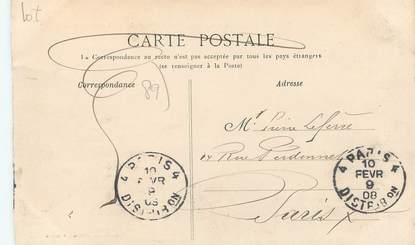 Lot
CARTE POSTALE
La Correspondance au recto n'est pas acceptée par tous les pays étrangers
(se renseigner à la Poste)
Correspondance
Adresse
89
Mr Pierre Lefèvre
Rue
Paris X
4 PARIS 4
10
FEVR
9
08
DISTRIB ON
4 PARIS 4
10
FEVR
9
08
DISTRIB ON